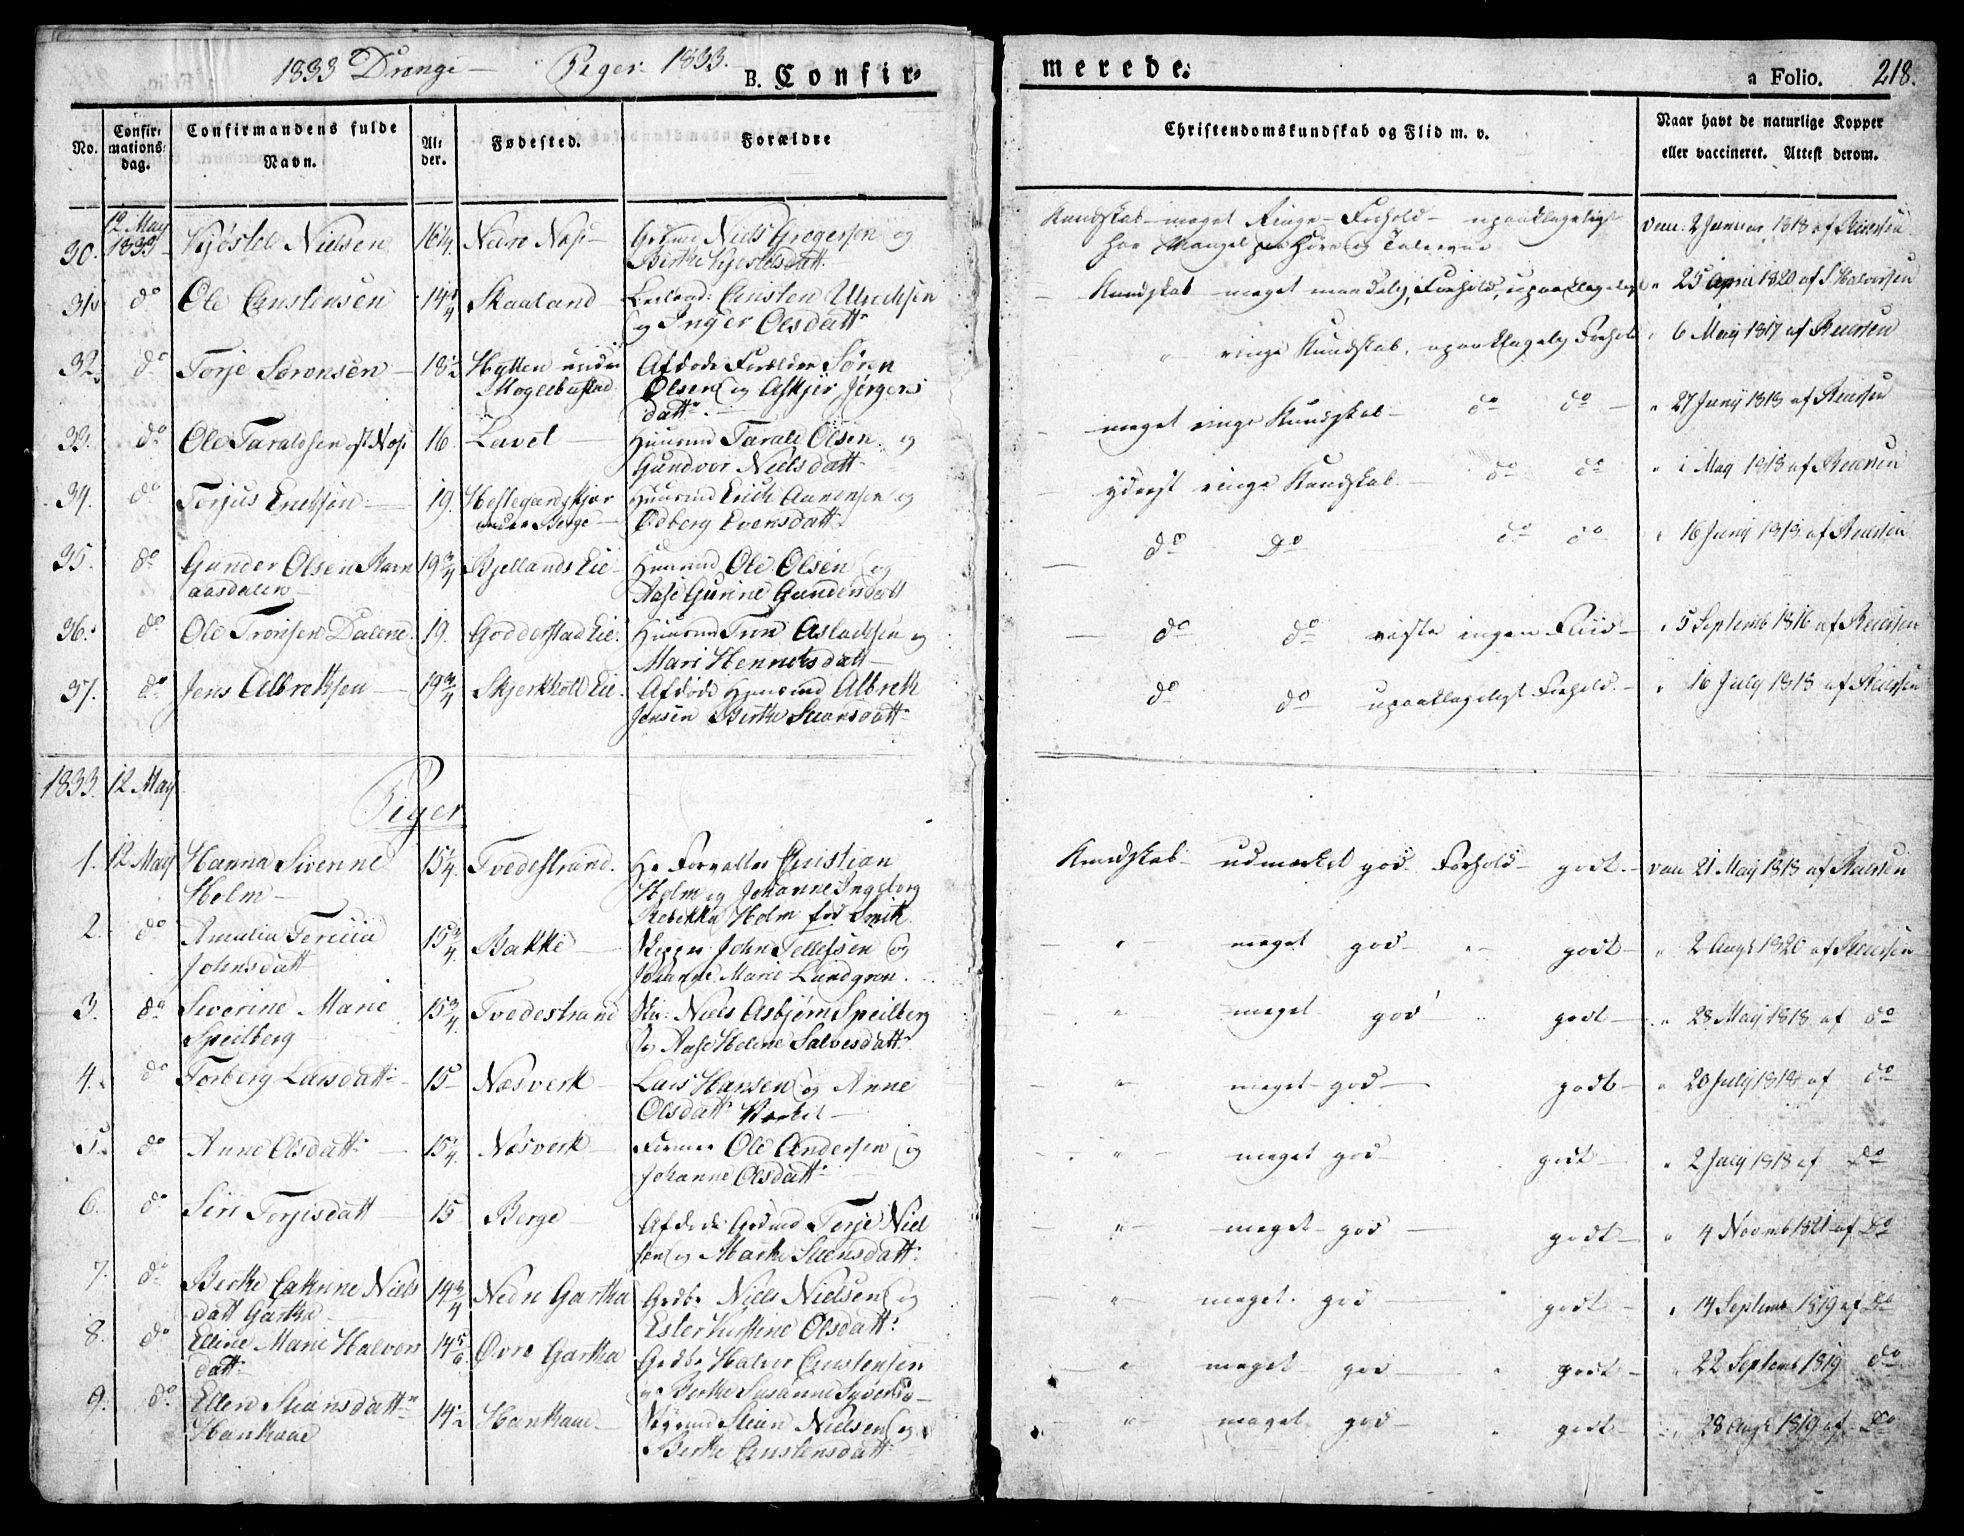 1833 Drenge — Piger 1833.
B. Confirmerede.
a Folio. 218.
No.
Confirmations dag.
Confirmandens fulde Navn.
Alder.
Fødested.
Forældre
Christendomskundskab og Flid m. v.
Naar havt de naturlige Kopper eller vaccineret. Attest derom.
30. 12 May 1833 Kjøstel Nielsen 16 1/4 Nedre Næs Grbmd Niels Gregersen og Kundskab meget Ringe - Forhold - upaaklageligt vacc. 2 Januar 1818 af Reiersen
Birthe Kjøstelsdatt. har Mangel paa Høre og Taleevne
31. do Ole Christensen 14 3/4 Skaaland Christen Ulrichsen Kundskab meget maadelig, Forhold upaaklageligt " 25 April 1820 af S Halvorsen
og Inger Olsdatt.
32. do Torje Sørensen 18 1/2 Hytten under Afdøde Forældre Søren ringe Kundskab, upaaklagelig Forhold " 6 May 1817 af Reiersen
Mogelbustad Olsen og Askjer Jørgens
datt.
33. do Ole Taraldsen 16 Lavet Huusmd Tarald Olsen og meget ringe Kundskab do do " 27 Juny 1818 af Reiersen
Gundvor Nielsdatt.
34. do Torjus Erichsen 19 Huusmd Erich Aanensen og yderst ringe Kundskab do do " 1 May 1818 af Reiersen
under Berge Odberg Evensdatt.
35. do Gunder Olsen Ravn 19 3/4 Bjellands Eie Huusmd Ole Olsen og do Do do do " 16 Juny 1818 af Reiersen
aasdalen Aase Gurine Gundersdatt
36. do Ole Tronsen Dalene 19 Godderstad Eie Huusmd Tron Aslachsen og do do viste ingen Fliid " 5 Septemb 1816 af Reiersen
Mari Henrichsdatt
37. do Jens Albrektsen 19 3/4 Skjerkholt Eie Afdøde Huusmd Albrek do do upaaklageligt Forhold " 16 July 1818 af Reiersen
Jensen Birthe Sveansdatt
1833. 12 May
Piger
1. 12 May Hanna Sivenne 15 1/4 Tvedestrand. Hr Forvalter Christian Kundskab udmærket god Forhold godt vacc 21 May 1818 af Reiersen
Holm Holm og Johanne Ingeborg
Rebekka Holm fød Smith
2. do Amalia Tericia 15 3/4 Bakke Skipper John Tellefsen og " meget god " godt " 2 Augt 1820 af Reiersen
Johnsdatt Johanne Marie Lundgren.
3. do Severine Marie 15 3/4 Tvedestrand Niels Asbjørn Speilberg " meget god " godt " 28 May 1818 af do
Speilberg og Aase Helene Salvesdatt
4. do Torberg Larsdatt 15 Næsverk Lars Hansen og Anne " meget god godt " 20 July 1818 af do
Olsdatt Værket
5. do Anne Olsdatt 15 1/4 Næsverk Former Ole Andersen og " meget god godt " 2 July 1818 af do
Johanne Olsdatt
6. do Siri Torjesdatt 15 Berge Afdøde Grbmd Torje Niel " meget god godt " 4 Novemb 1821 af do
sen og Marthe Sveensdatt
7. do Birthe Cathrine Niels 14 3/4 Nedre Gartha Grdbr Niels Nielsen og " meget god " godt " 14 Septemb 1819 af do
datt Gartha Ester Kirstine Olsdatt
8. do Elline Marie Halvors 14 5/6 Øvre Gartha Grdbr Halvor Christensen " meget god " godt " 22 Septemb 1819 do
datt og Birthe Susanne Syversd
9. do Ellen Sveansdatt 14 1/2 Hankaae Svean Nielsen og " meget god " godt " 28 Augt 1819 af do
Hankaae Birthe Christensdatt